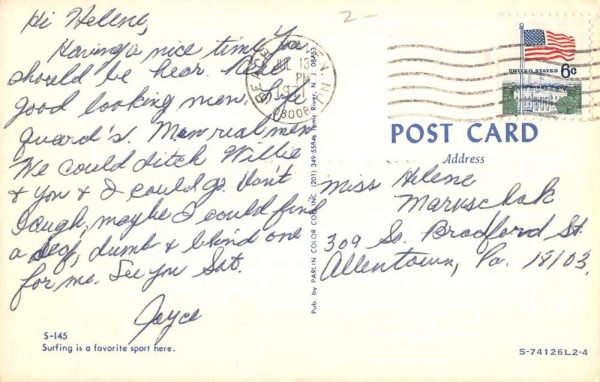 Hi Helene,
Having a nice time. You
should be hear. All
good looking men, life
guard's. Man real men
We could ditch Willie
& you & I could go. Don't
laugh, maybe I could find
a deef, dumb & blind one
for me. See you Sat.
Joyce
S-145
Surfing is a favorite sport here.
Pub. by PARLIN COLOR CO. INC. (201) 349-558 Toms River, N. J. 08753
2-
BEACH HAVEN, N.J.
JUL 13
PM
1971
08008
UNITED STATES 6c
POST CARD
Address
Miss Helene
Maruschak
309 So. Bradford St.
Allentown, Pa. 18103.
S-74126L2-4